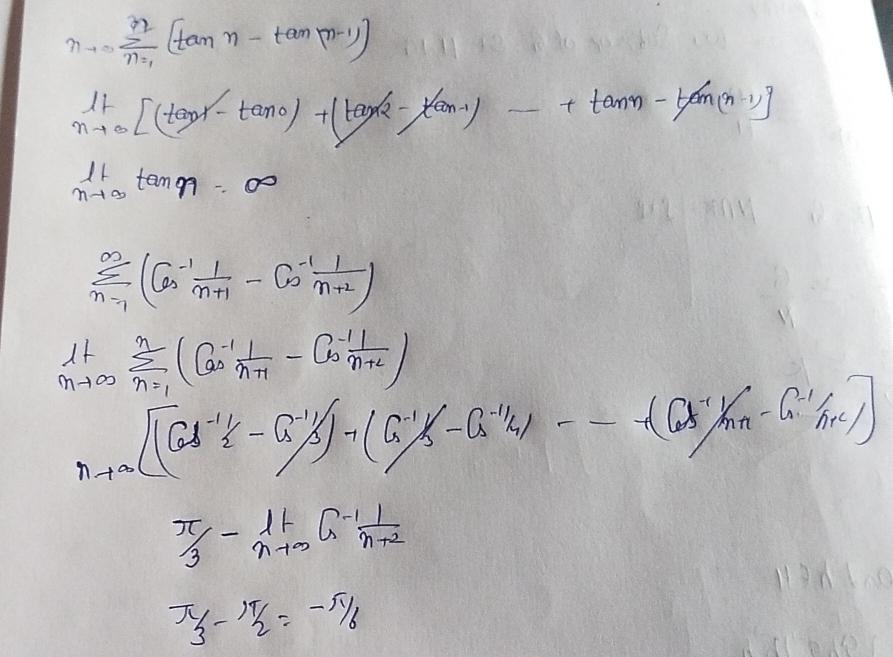 n→∞ Σ n=1 n [tan n - tan (n-1)]
lt n→∞ [(tan1 - tan0) + (tan2 - tan1) — + tan n - tan(n-1)]
lt n→∞ tan n = ∞
∞ Σ n=1 (Cos⁻¹ 1/n+1 - Cos⁻¹ 1/n+2)
lt n→∞ n Σ n=1 (Cos⁻¹ 1/n+1 - Cos⁻¹ 1/n+2)
n→∞ [(Cos⁻¹ 1/2 - Cos⁻¹ 1/3) + (Cos⁻¹ 1/3 - Cos⁻¹ 1/4) - - - + (Cos⁻¹ 1/n+1 - Cos⁻¹ 1/n+2)]
π/3 - lt n→∞ Cos⁻¹ 1/n+2
π/3 - π/2 = -π/6